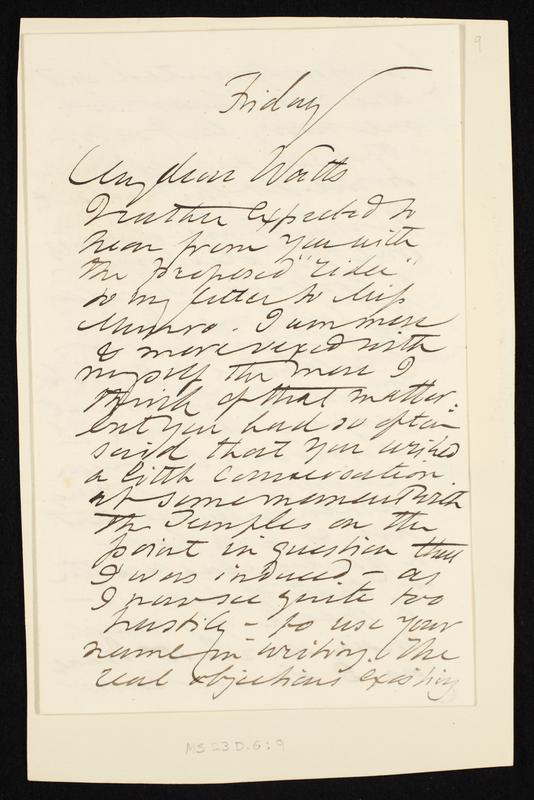 9
Friday
My dear Watts
I rather expected to
hear from you with
the proposed "rider"
to my letter to Miss
Munro. I am more
& more vexed with
myself the more I
think of that matter:
but you had so often
said that you wished
a little conversation
at some moment with
the Temples on the
point in question that
I was induced – as
I now see quite too
hastily – to use your
name in writing. The
real objections existing
MS 23 D. 6 : 9